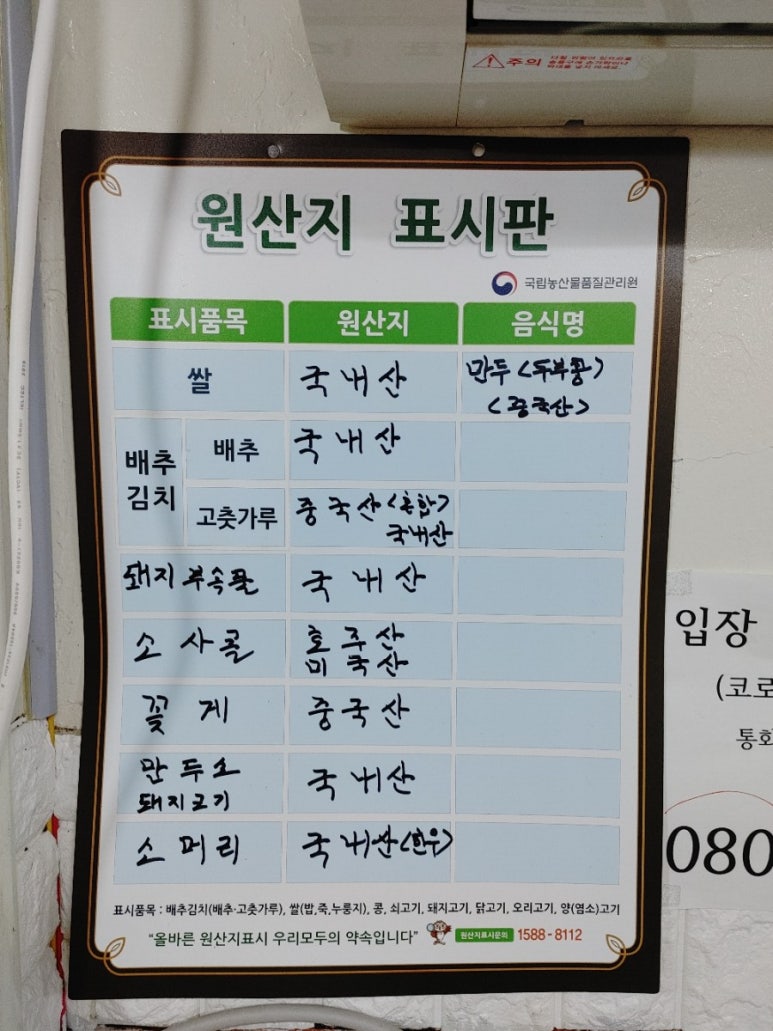 주의
원산지 표시판
국립농산물품질관리원
표시품목 원산지 음식명
쌀 국내산 만두<두부콩>
<중국산>
배추김치 배추 국내산
고춧가루 중국산<혼합>
국내산
돼지 부속물 국내산
소 사골 호주산
미국산
꽃게 중국산
만두소
돼지고기 국내산
소머리 국내산<한우>
표시품목 : 배추김치(배추·고춧가루), 쌀(밥,죽,누룽지), 콩, 쇠고기, 돼지고기, 닭고기, 오리고기, 양(염소)고기
“올바른 원산지표시 우리모두의 약속입니다” 원산지표시문의 1588-8112
입장
(코로
통화
080